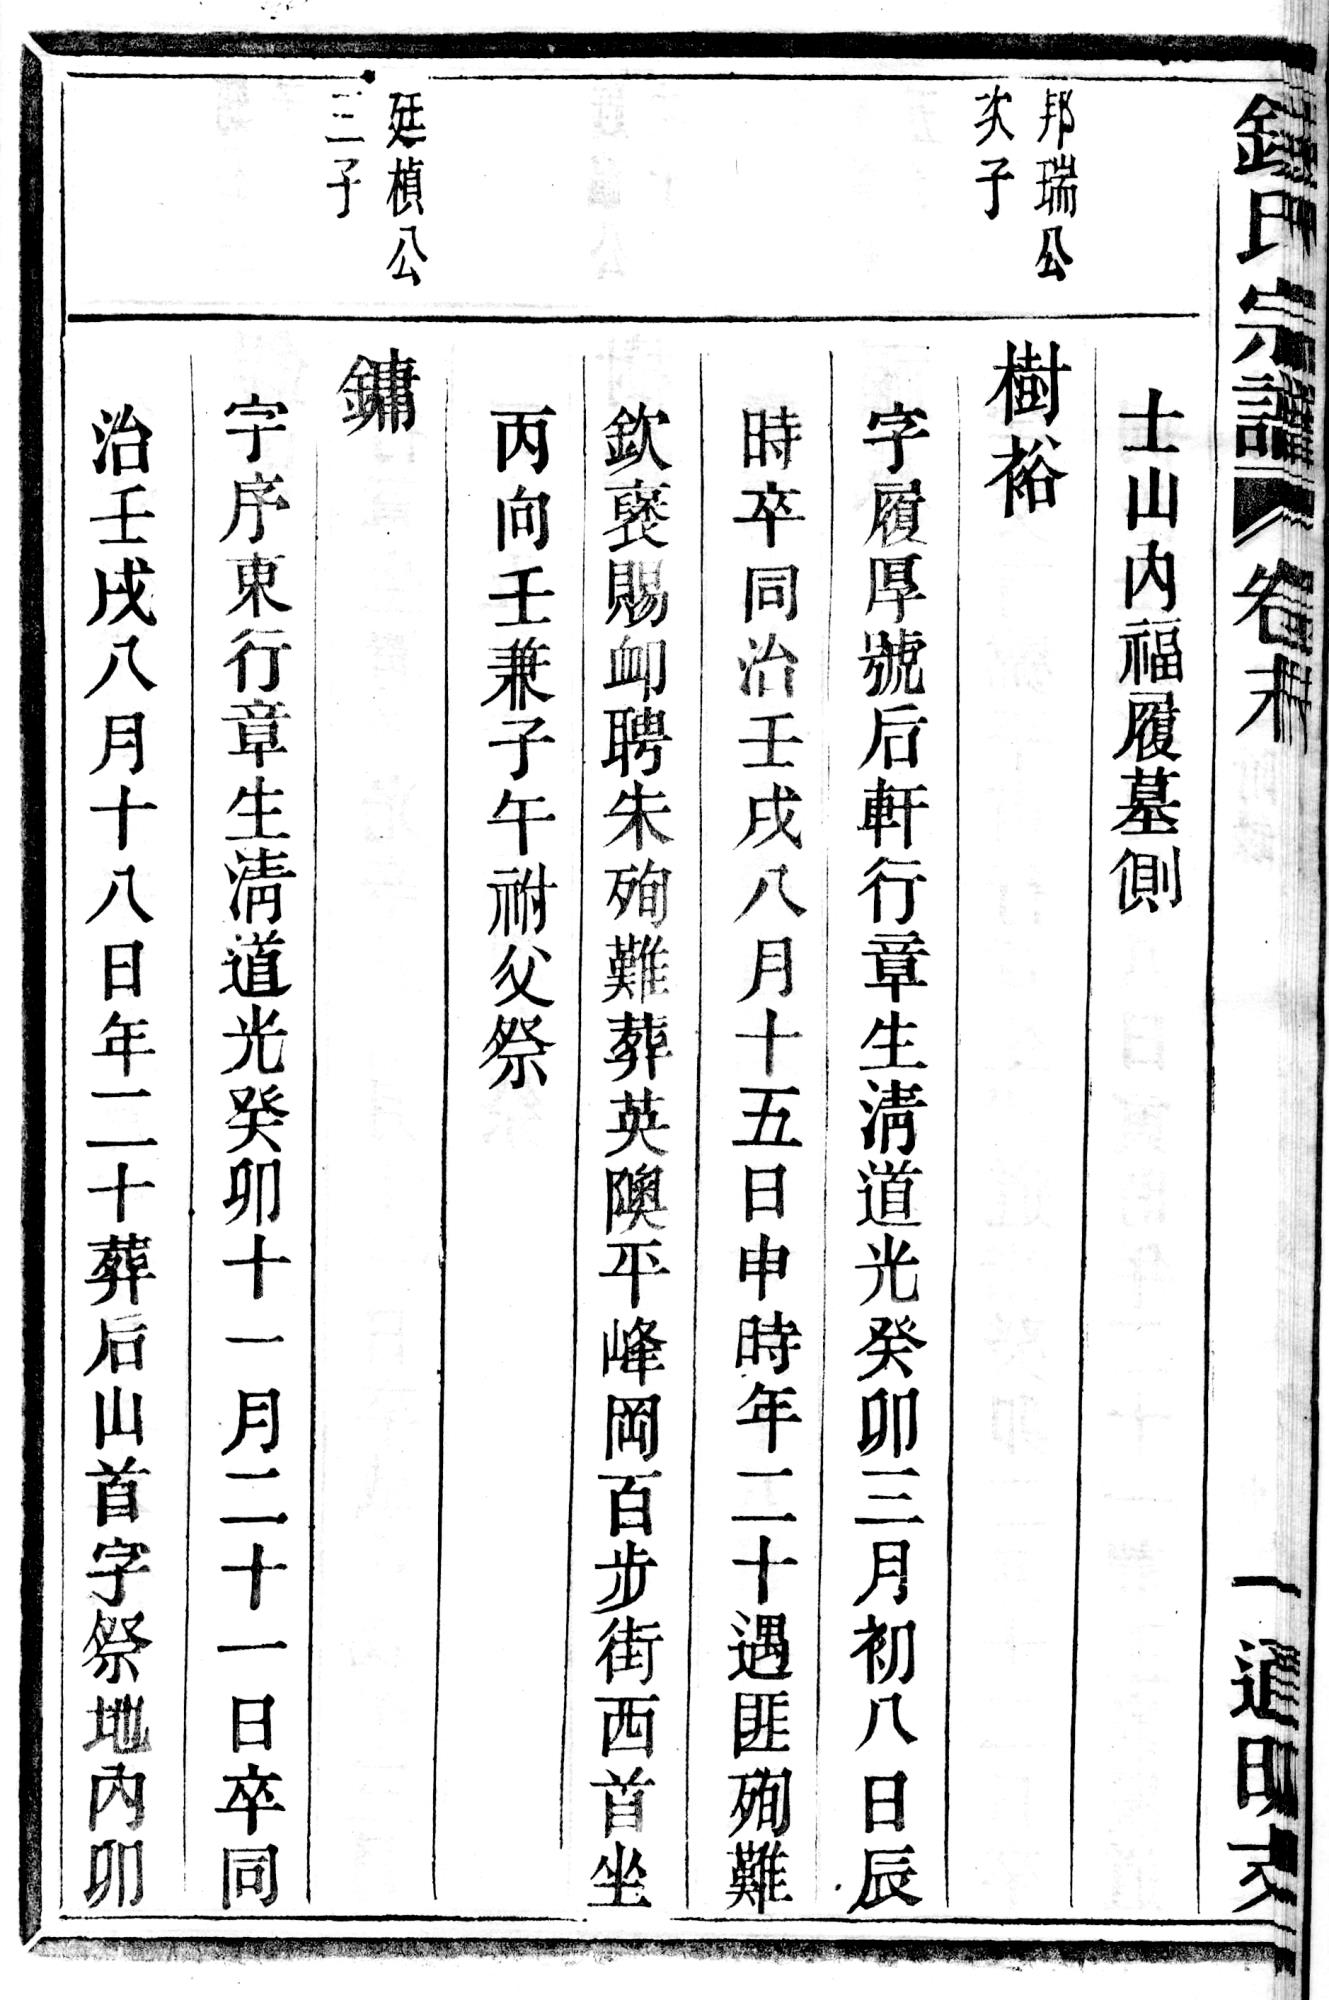 氏宗譜 卷末 一 道明支
土山內福履墓側
邦瑞公
次子
樹裕
字履厚號后軒行章生淸道光癸卯三月初八日辰
時卒同治壬戌八月十五日申時年二十遇匪殉難
欽襃賜卹聘朱殉難葬英隩平峰岡百步街西首坐
丙向壬兼子午祔父祭
廷楨公
三子
鏞
字序東行章生淸道光癸卯十一月二十一日卒同
治壬戌八月十八日年二十葬后山首字祭地內卯